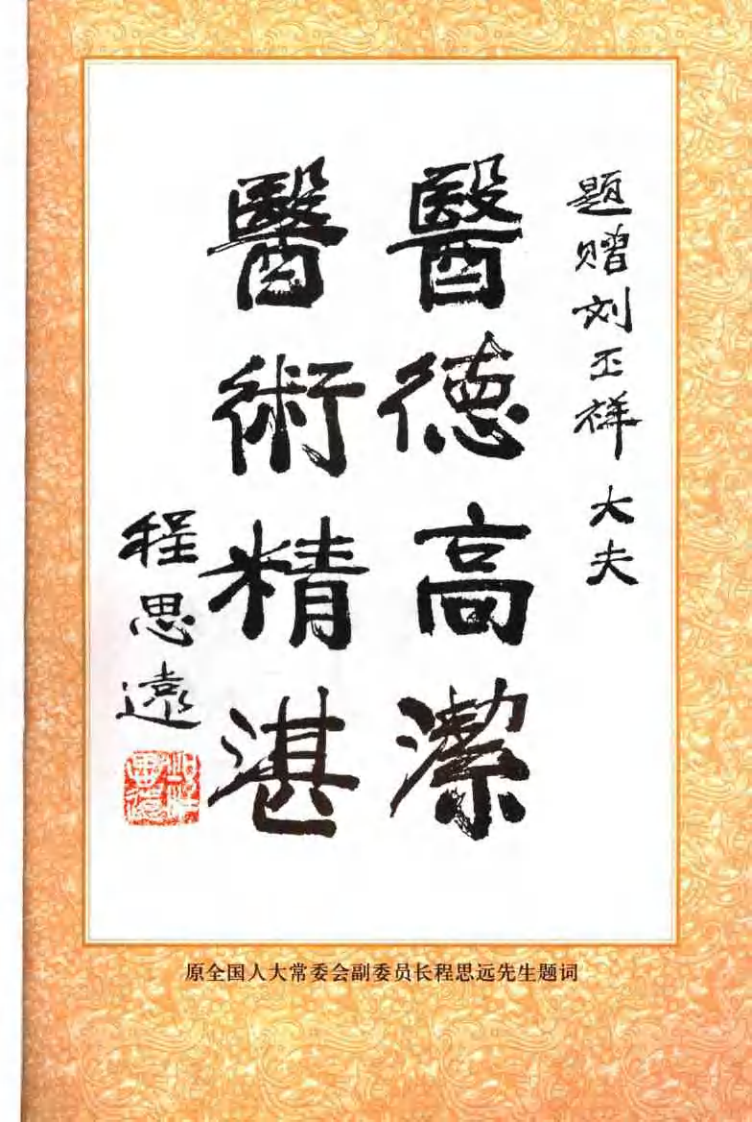 题赠刘玉祥大夫
醫德高潔
醫術精湛
程思遠
原全国人大常委会副委员长程思远先生题词